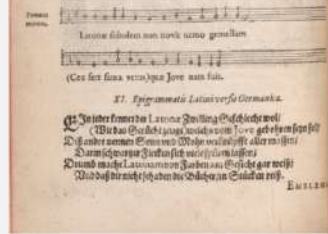 Latonæ sobolem non novit nemo gemellam
(Ceu fert fama vetus) quæ Jove nata fuit.
XI. Epigrammatis Latini versio Germanica.
EIn jeder kennet der Latonæ Zwilling Geschlecht wol/
(Wie das Gerücht zeugt) welchs vom Jove gebohren seyn sol/
Diß ander nennen Sonn und Mohn
Darin schwartze Flecken sich
Drumb macht Latonam von Farben am Gesicht gar weiß/
Und daß dir nicht schaden die Bücher/in Stücken reiß.